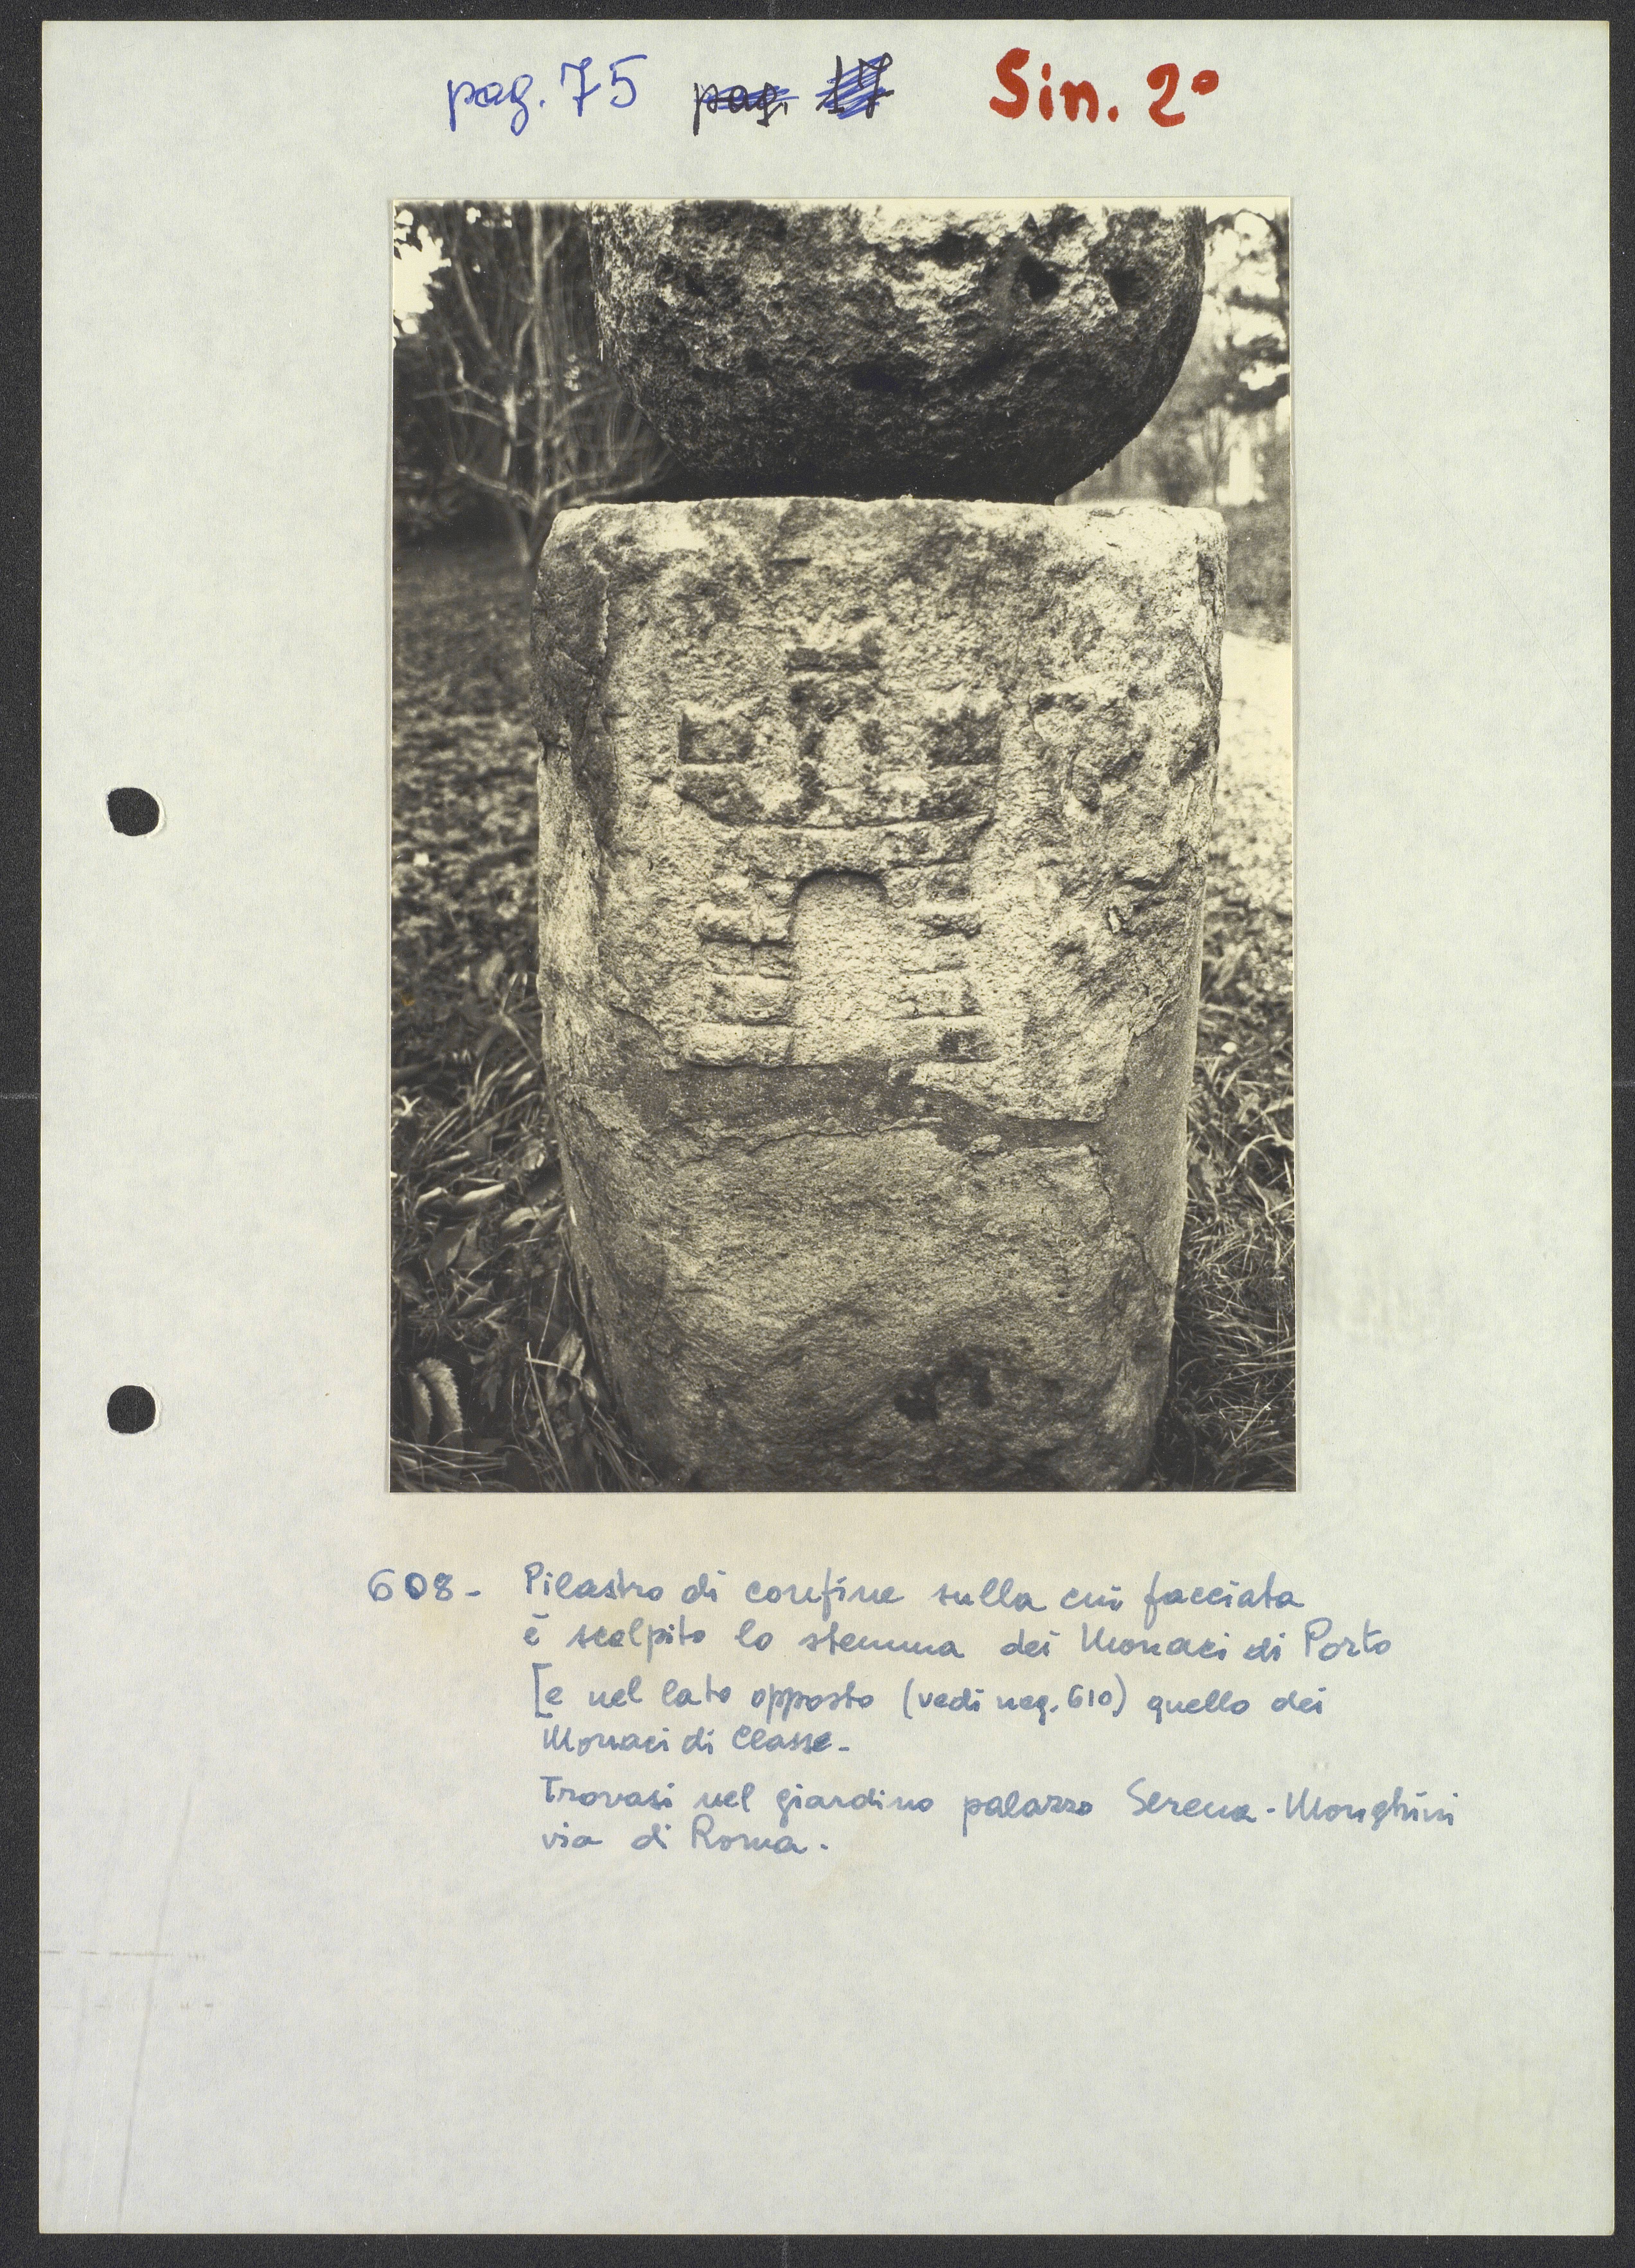 pag. 75 pag. 17 Sin. 2°
608- Pilastro di confine sulla cui facciata
è scolpito lo stemma dei Monaci di Porto
[e nel lato opposto (vedi neg. 610) quello dei
Monaci di Classe-
Trovasi nel giardino palazzo Serena-Monghini
via di Roma.